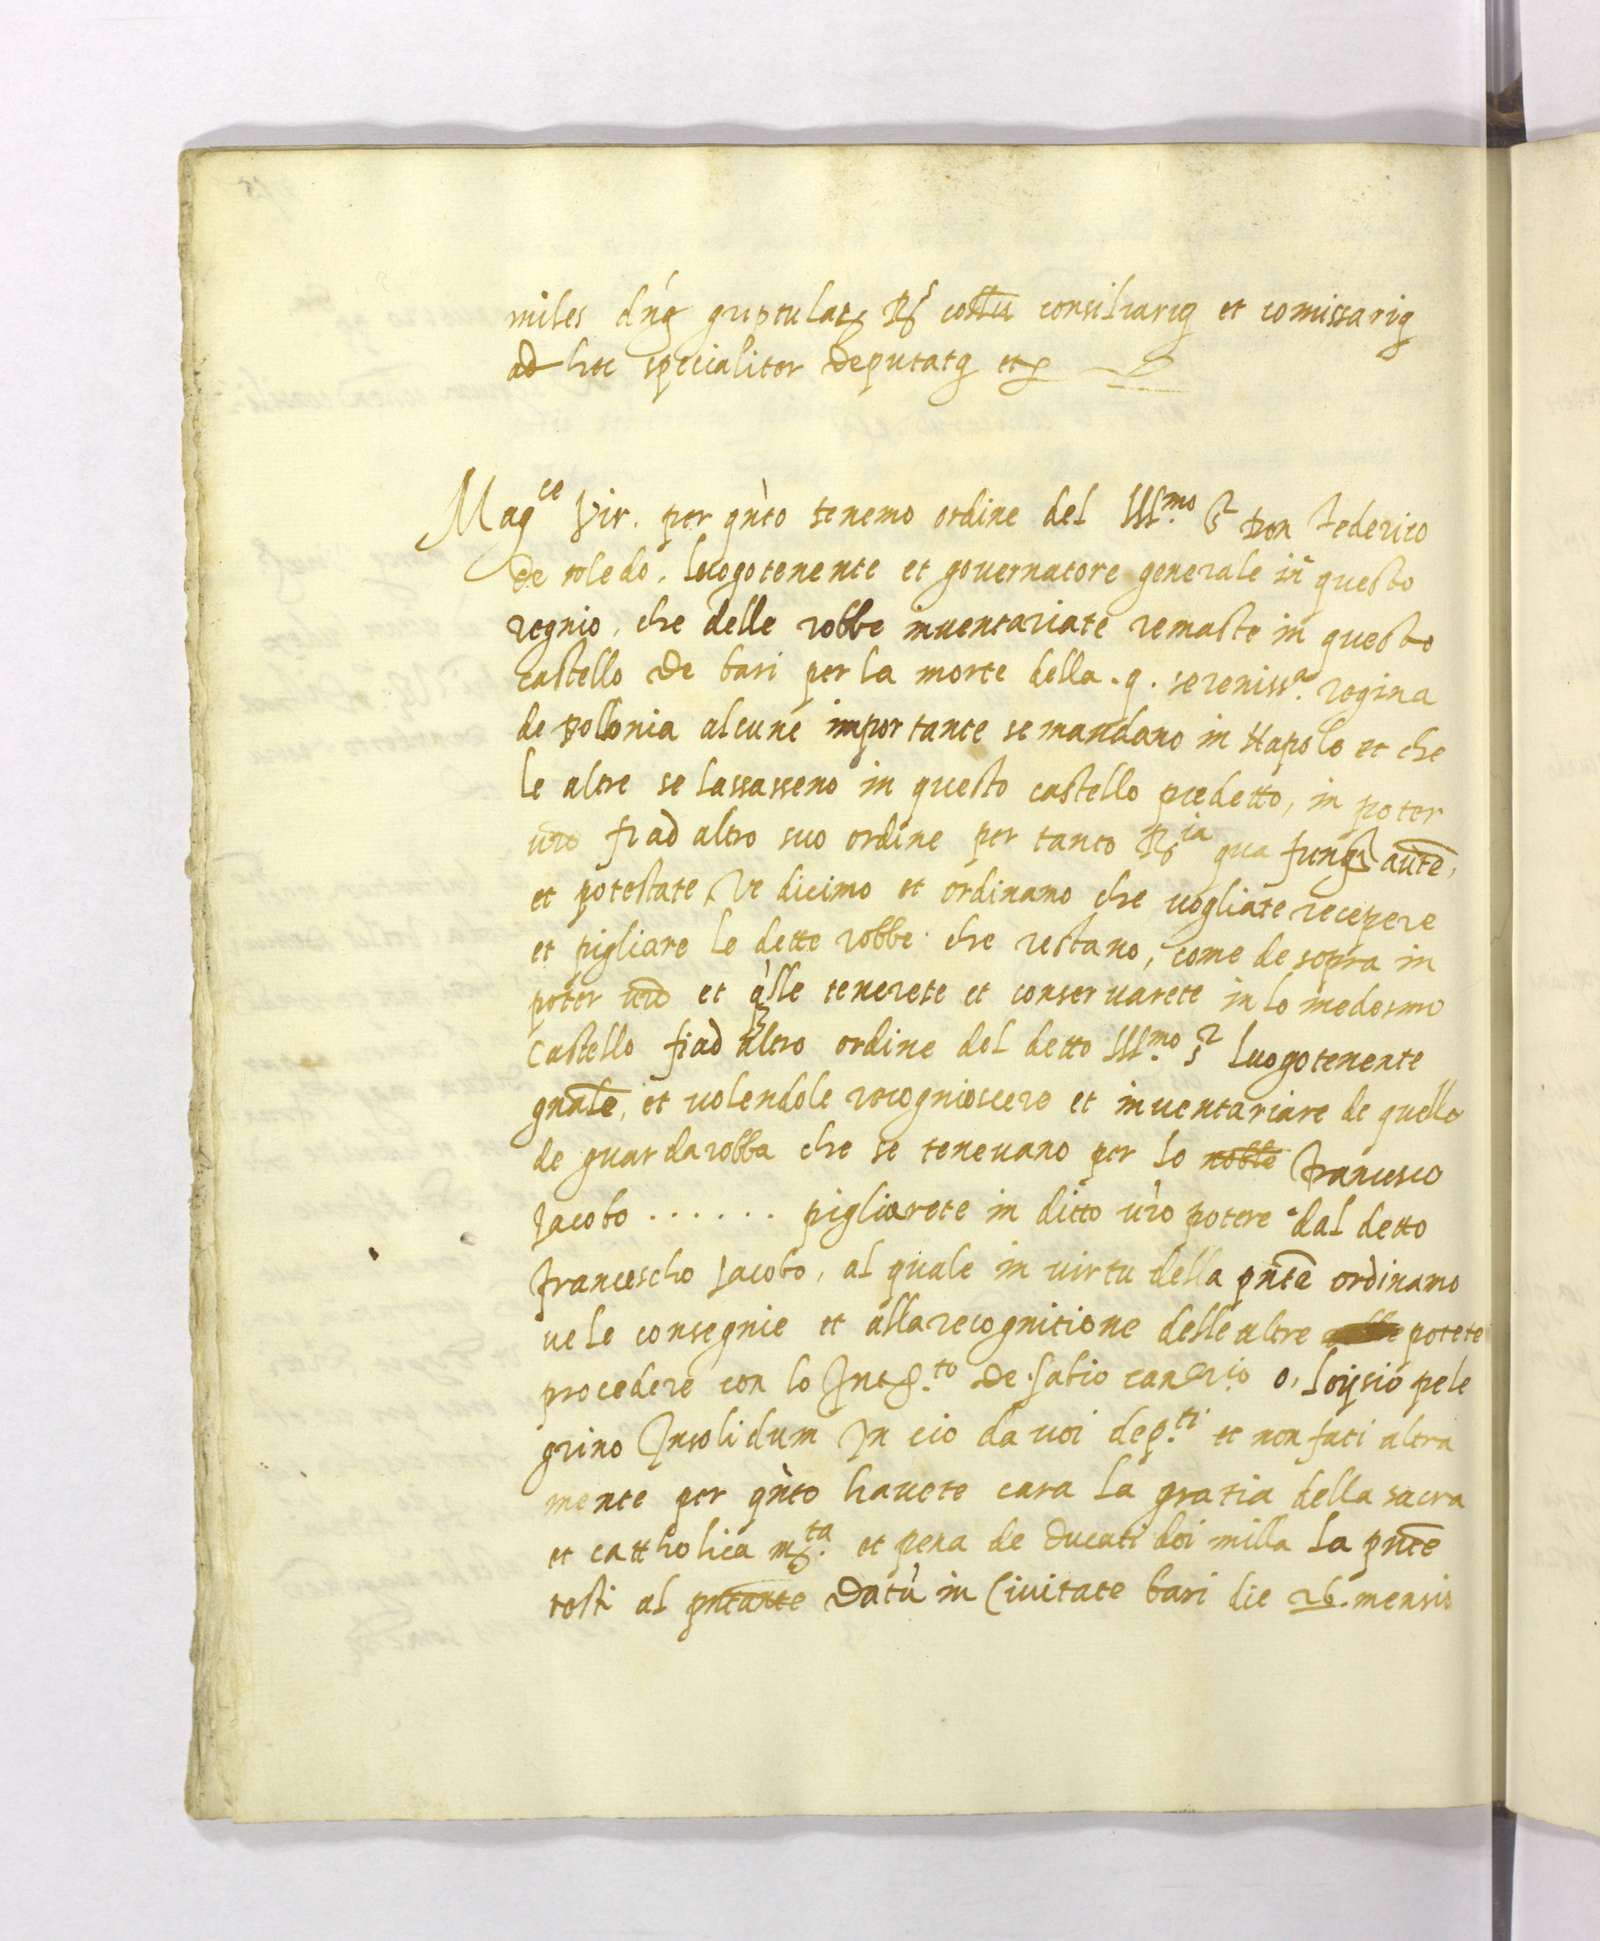 miles dn͂s Rs consiliarius et comissarius
ad hoc specialiter deputatus etc
Mag.ce Vir. per qn̄to tenemo ordine del Ill.mo S.r Don Federico
de toledo, luogotenente et governatore generale in questo
regnio, che delle robbe inventariate remaste in questo
castello de bari per la morte della .q. sereniss.a regina
de pollonia alcune importante se mandano in Napole et che
le altre se lassasseno in questo castello predetto, in poter
vr̄o fi ad altro suo ordine per tanto R.ia qua fungr autē,
et potestate ve dicimo et ordinamo che vogliate recepere
et pigliare le dette robbe che restano, come de sopra in
poter vr̄o et q̄lle tenerete et conservarete in lo medesmo
Castello fi ad altro ordine del detto Ill.mo S.r luogotenente
gnāle, et volendole recognioscere et inventariare de quelle
de guardarobba che se tenevano per lo noble Francesco
Jacobo . . . . . . pigliarete in ditto vr̄o potere dal detto
francescho Jacobo, al quale in virtu della pn̄te ordinamo
ve le consegnie et alla recognitione delle altre potete
procedere con lo de fabio o, loysio pele
grino Insolidum In cio da voi dep.ti et non fati altra
mente per qn̄to havete cara la gratia della sacra
et cattholica m.ta et pena de ducati doi milla la pn̄te
resti al pn̄tante Datū in Civitate bari die 26. mensis